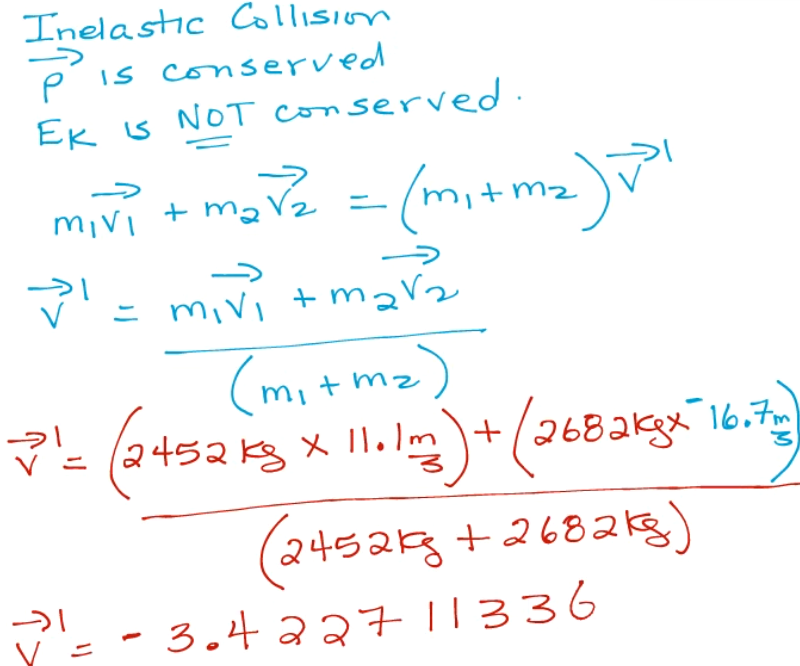 Inelastic Collision
p⃗ is conserved
Ek is NOT conserved.
m₁v⃗₁ + m₂v⃗₂ = (m₁+m₂)v⃗'
v⃗' = m₁v⃗₁ + m₂v⃗₂
(m₁+m₂)
v⃗' = (2452kg × 11.1m/s) + (2682kg× ⁻16.7m/s)
(2452kg + 2682kg)
v⃗' = -3.422711336